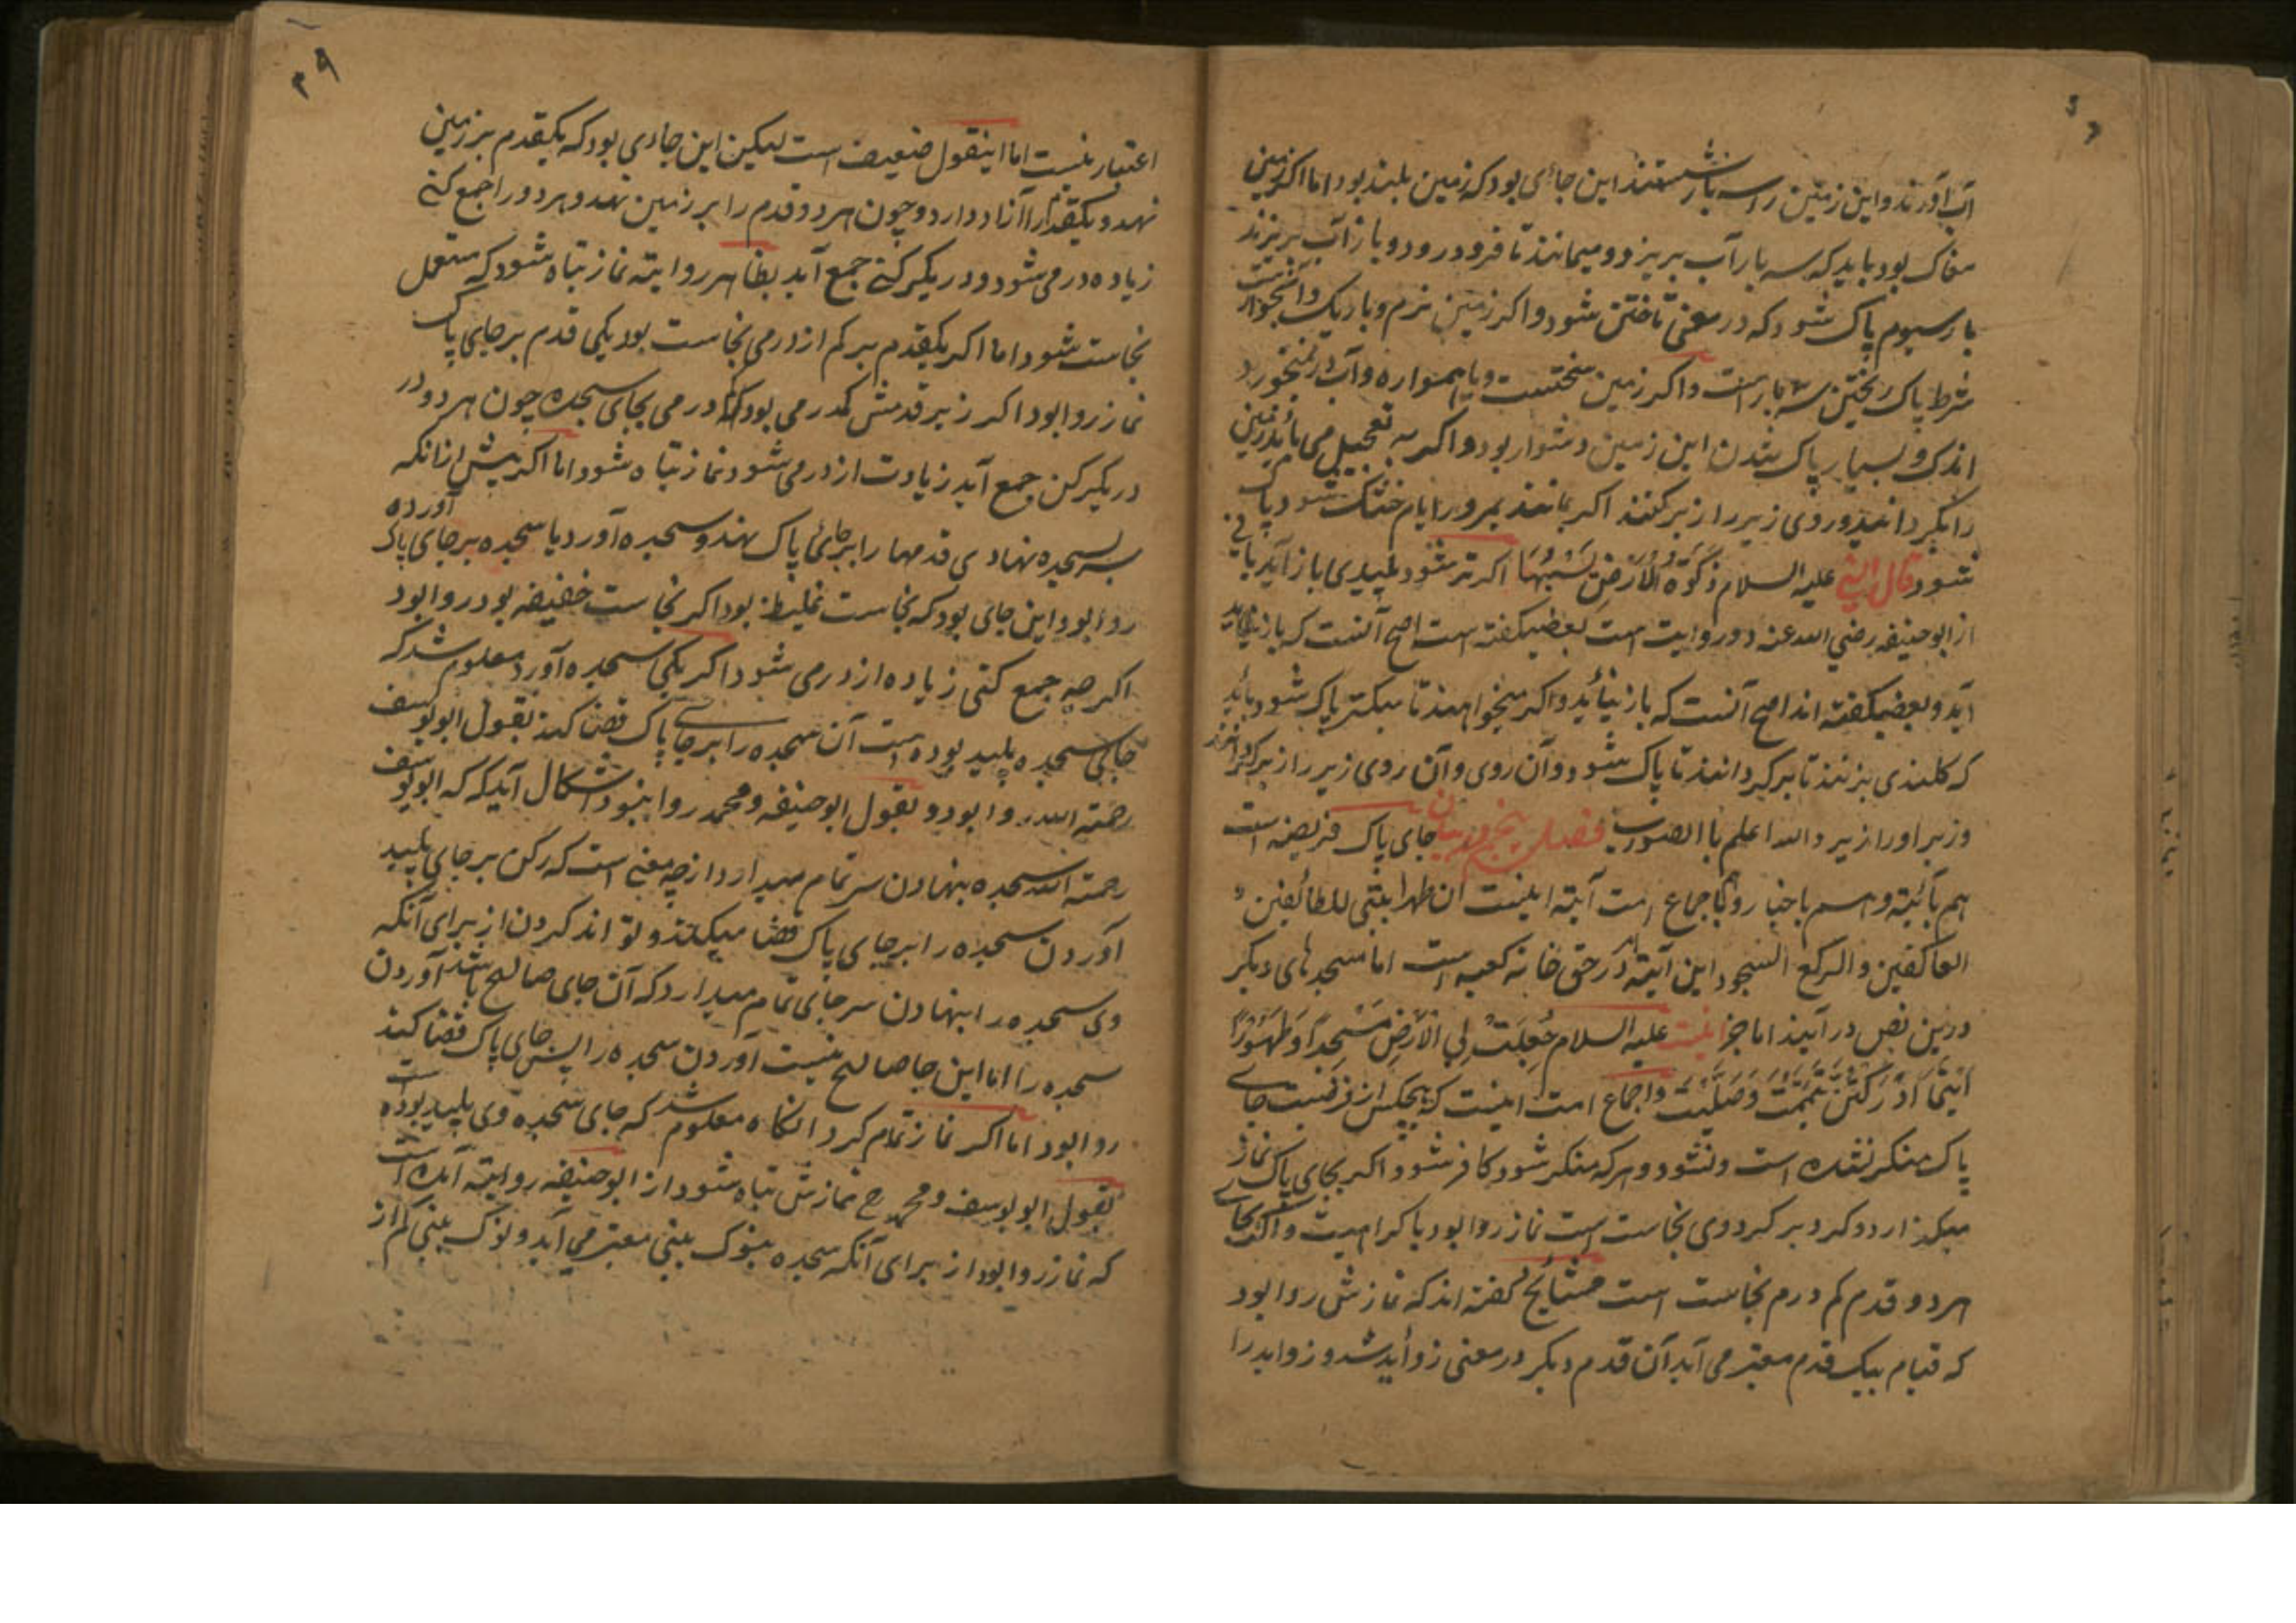 آب آورند و این زمین را سه بار شستند این جائی بود که زمین بلند بود اما اکر زمین
مغاک بود باید که سه بار آب بریزد و میمانند تا فرو در رود و باز آب بریزند
بار سیوم پاک شود که در معنی تاختن شود و اکر زمین نرم و باریک
شرط پاک ریختن سه بار است و اکر زمین سختست و یا همواره و آب در نمیخورد
اندک و بسیار پاک شدن این زمین دشوار بود و اکر به تعجیل می باید زمین
را بگردانند و روی زیر را زبر کنند اکر بمانند بمرور ایام خشک شود پاک
شود قال النبی علیه السلام ذکوة الارض یبسها اکر تر شود پلیدی باز آید یا نی
از ابو حنیفه رضی الله عنه دو روایت است بعضی کفته است اصح آنست که باز
آید و بعضی کفته اند اصح آنست که باز نیاید و اکر میخواهند تا سبکتر پاک شود باید
که کلندی بزنند تا برکردانند تا پاک شود و آن روی و آن روی زیر را زبر کردانند
و زبر او را زیر و الله اعلم باالصواب فصل پنجم در بیان جای پاک فریضه است
هم بآیته و هم باخبار و باجماع امت آیته اینست ان طهرا بیتی للطائفین و
العاکفین والرکع السجود این آیته در حق خانه کعبه است اما مسجدهای دیکر
درین نص در آیند اما خبر اینست علیه السلام جعلت لی الارض مسجدا و طهورا
اینما ادرکتنی تیممت و صلیت و اجماع امت اینست که هیچکس از فرضیت جای
پاک منکر نشده است و نشود و هر که منکر شود کافر شود و اکر بجای پاک نماز
میکذارد و کرد بر کرد وی نجاست است نماز روا بود با کراهیت و اکر بجای
هر دو قدم کم درم نجاست است مشایخ کفته اند که نمازش روا بود
که قیام بیک قدم معتبر می آید آن قدم دیکر در معنی زواید شد و زواید را
۳۹
اعتبار نیست اما اینقول ضعیف است لیکن این جای بود که یکقدم بر زمین
نهد و یکقدم را آزاد دارد و چون هر دو قدم را بر زمین نهد و هر دو را جمع کنی
زیاده درمی شود و در یک رکنی جمع آید بظاهر روایته نماز تباه شود که مستعمل
نجاست شود اما اکر یکقدم بر کم از درمی نجاست بود یکی قدم بر جای پاک
نماز روا بود اکر زیر قدمش کم درمی بود و کم درمی بجای سجده چون هر دو در
در یک رکن جمع آید زیادت از درمی شود نماز تباه شود اما اکر پیش از انکه
سر بسجده نهادی قدمها را بر جای پاک نهد و سجده آورد یا سجده بر جای پاک آورده
روا بود این جای بود که نجاست غلیظه بود اکر نجاست خفیفه بود روا بود
اکر چه جمع کنی زیاده از درمی شود اکر یکی سجده آورد معلوم شد که
جای سجده پلید بوده است آن سجده را بر جای پاک قضا کند بقول ابو یوسف
رحمته الله روا بود و بقول ابو حنیفه و محمد روا نبود اشکال آید که که ابو یوسف
رحمته الله سجده بنهادن سر تمام میدارد از چه معنی است که رکن بر جای پلید
آوردن سجده را بر جای پاک قضا میکند و لو اند کردن از برای آنکه
وی سجده را بنهادن سر جای تمام میدارد که آن جای صالح باشد آوردن
سجده را اما این جا صالح نیست آوردن سجده را پس جای پاک قضا کند
روا بود اما اکر نماز تمام کرد انکاه معلوم شد که جای سجده وی پلید بوده است
بقول ابو یوسف و محمد رح نمازش تباه شود از ابو حنیفه روایته آمده است
که نماز روا بود از برای آنکه سجده بنوک بینی معتبر می آید و نوک بینی کم از